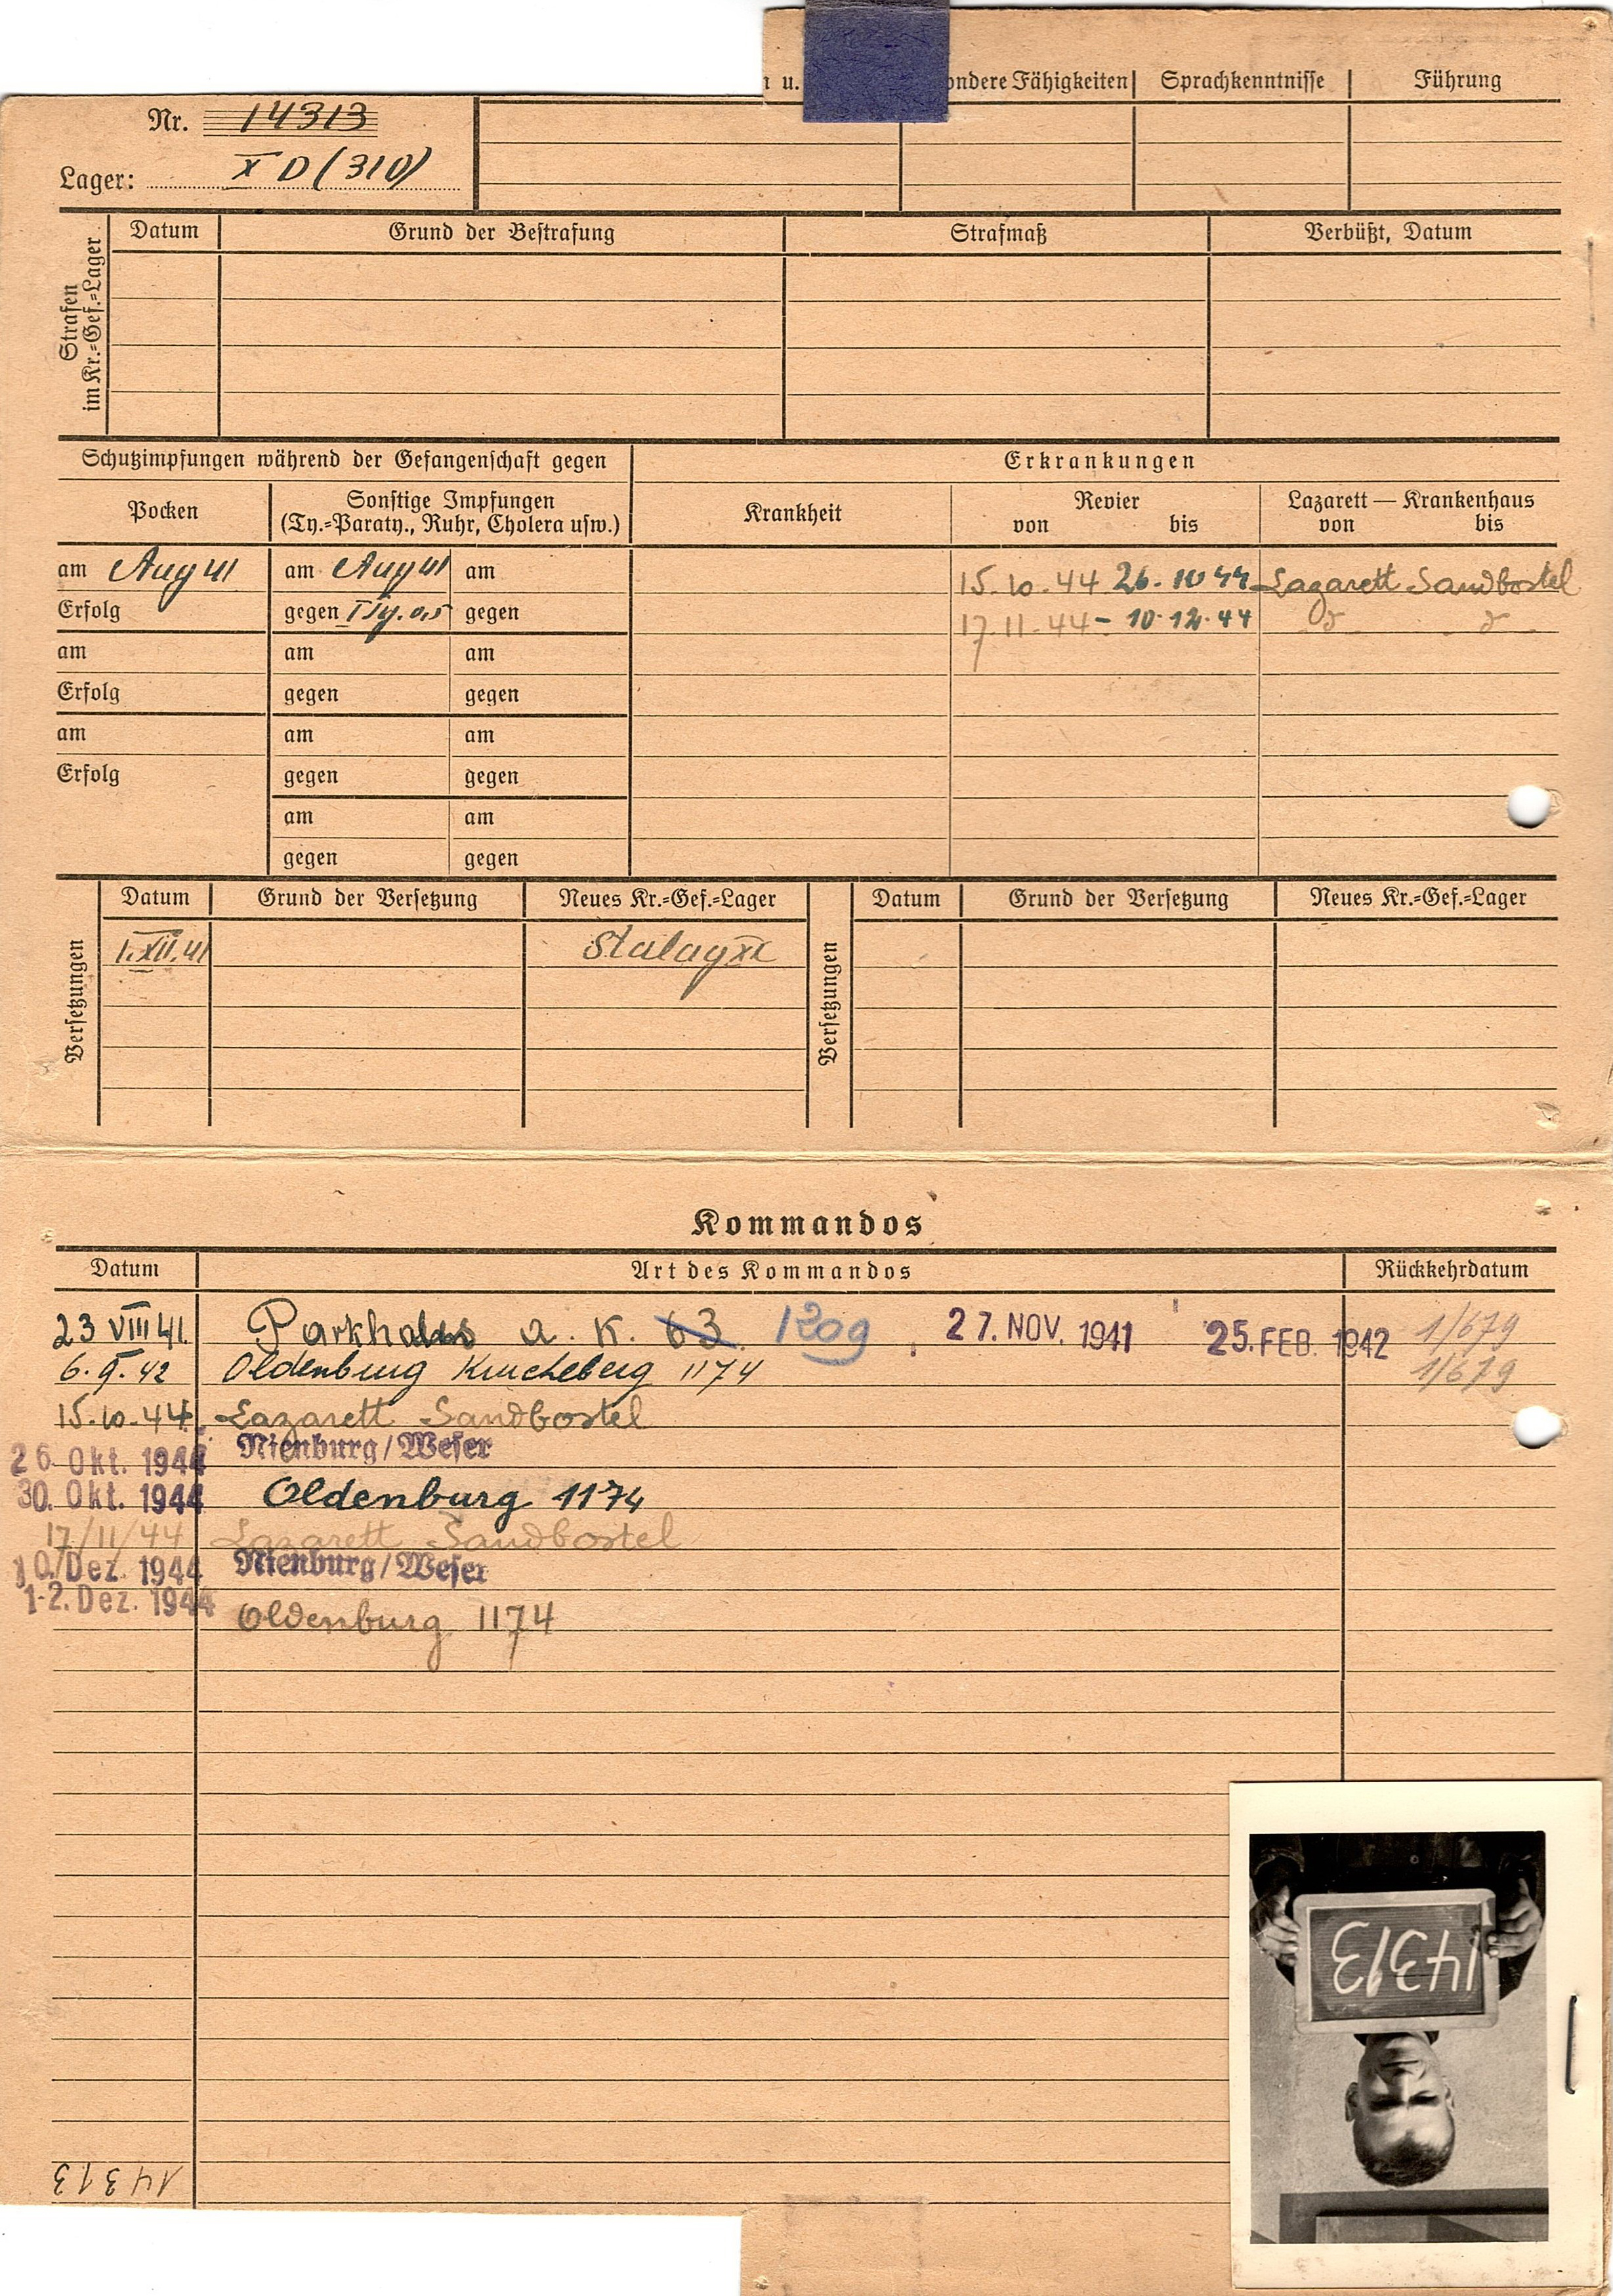 u.
ondere Fähigkeiten Sprachkenntnisse Führung
Nr. 14313
Lager: X D (310)
Strafen
im Kr.=Gef.=Lager
Datum Grund der Bestrafung Strafmaß Verbüßt, Datum
Schutzimpfungen während der Gefangenschaft gegen Erkrankungen
Pocken
Sonstige Impfungen
(Ty.=Paraty., Ruhr, Cholera usw.)
Krankheit
Revier
von bis
Lazarett — Krankenhaus
von bis
am Aug 41 am Aug 41 am 15.10.44 26.10 44 Lazarett Sandbostel
Erfolg gegen gegen 17.11.44 - 10.12.44
am am am
Erfolg gegen gegen
am am am
Erfolg gegen gegen
am am
gegen gegen
Versetzungen
Datum Grund der Versetzung Neues Kr.=Gef.=Lager
1.XII.41 Stalag
Versetzungen
Datum Grund der Versetzung Neues Kr.=Gef.=Lager
Kommandos
Datum Art des Kommandos Rückkehrdatum
23 VIII 41. a. K. 63. 1209 27. NOV. 1941 25. FEB. 1942 1/679
6. 9. 42 Oldenburg 1174 1/679
15.10.44. Lazarett Sandbostel
26. Okt. 1944 Nienburg/Weser
30. Okt. 1944 Oldenburg 1174
17/11/44 Lazarett Sandbostel
10. Dez. 1944 Nienburg/Weser
1-2. Dez. 1944 Oldenburg 1174
14313
14313